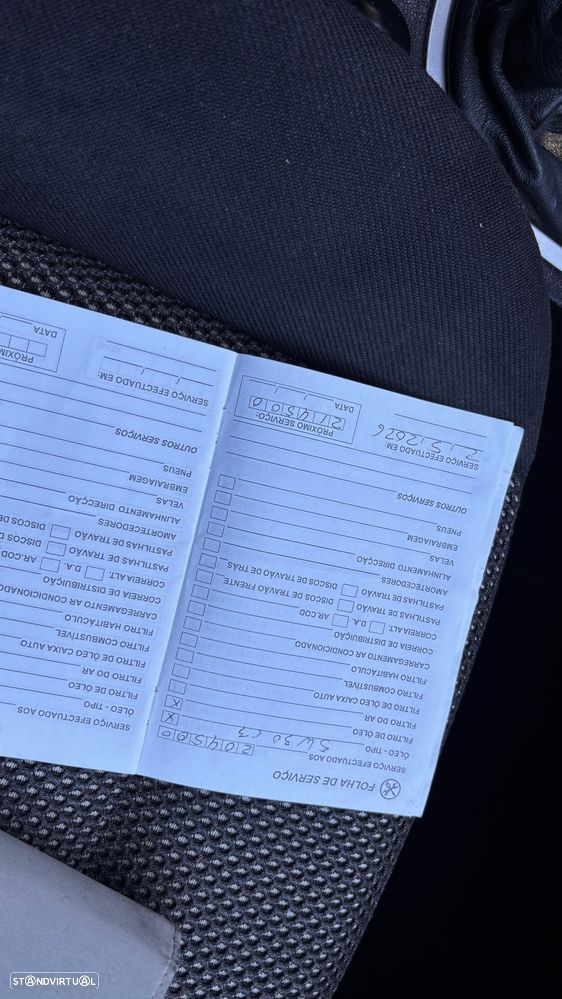 FOLHA DE SERVIÇO
SERVIÇO EFECTUADO AOS 204500
ÓLEO - TIPO 5W30 C3
FILTRO DE ÓLEO X
FILTRO DO AR X
FILTRO DE ÓLEO CAIXA AUTO
FILTRO COMBUSTÍVEL
FILTRO HABITÁCULO
CARREGAMENTO AR CONDICIONADO
CORREIA DE DISTRIBUIÇÃO
CORREIA: ALT. D.A. AR.COD
PASTILHAS DE TRAVÃO DISCOS DE TRAVÃO FRENTE
PASTILHAS DE TRAVÃO DISCOS DE TRAVÃO DE TRÁS
AMORTECEDORES
ALINHAMENTO DIRECÇÃO
VELAS
EMBRAIAGEM
PNEUS
OUTROS SERVIÇOS
SERVIÇO EFECTUADO EM:
2.5.2026
PRÓXIMO SERVIÇO:
214500
DATA
SERVIÇO EFECTUADO AOS
ÓLEO - TIPO
FILTRO DE ÓLEO
FILTRO DO AR
FILTRO DE ÓLEO CAIXA AUTO
FILTRO COMBUSTÍVEL
FILTRO HABITÁCULO
CARREGAMENTO AR CONDICIONADO
CORREIA DE DISTRIBUIÇÃO
CORREIA: ALT. D.A. AR.COD
PASTILHAS DE TRAVÃO DISCOS D
PASTILHAS DE TRAVÃO DISCOS DE
AMORTECEDORES
ALINHAMENTO DIRECÇÃO
VELAS
EMBRAIAGEM
PNEUS
OUTROS SERVIÇOS
SERVIÇO EFECTUADO EM:
PRÓXIMO
DATA
STANDVIRTUAL